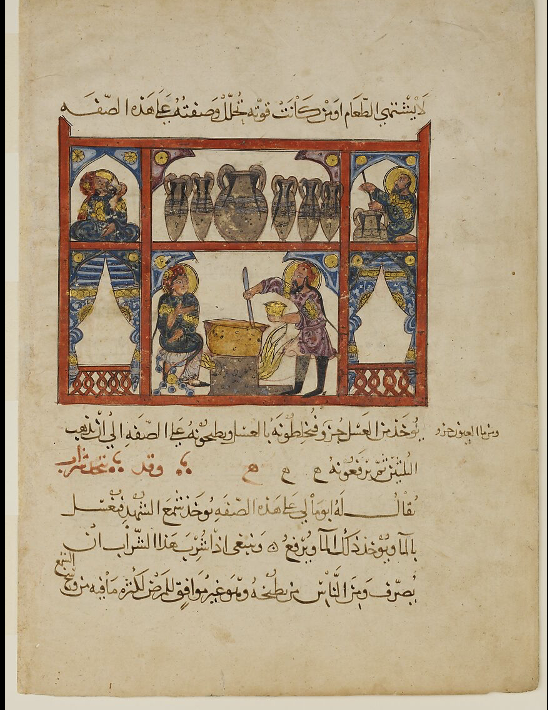 لا يشتهي الطعام او من كانت قوته تحلل وصفته على هذه الصفه
يوخذ من العسل جزو فيخلطونه بالعسل ويطبخونه على الصفه الى ان يذهب
الثلثين ثم يرفعونه
يقال له ابوما لي على هذه الصفه يوخذ شمع الشهد فيغسل
بالما ويوخذ ذلك الما ويرفع وينبغي اذا شرب هذا الشراب ان
يصرف ومن الناس من يطبخه وهو غير موافق للمرضى لكثره ما فيه من وسخ
الشمع